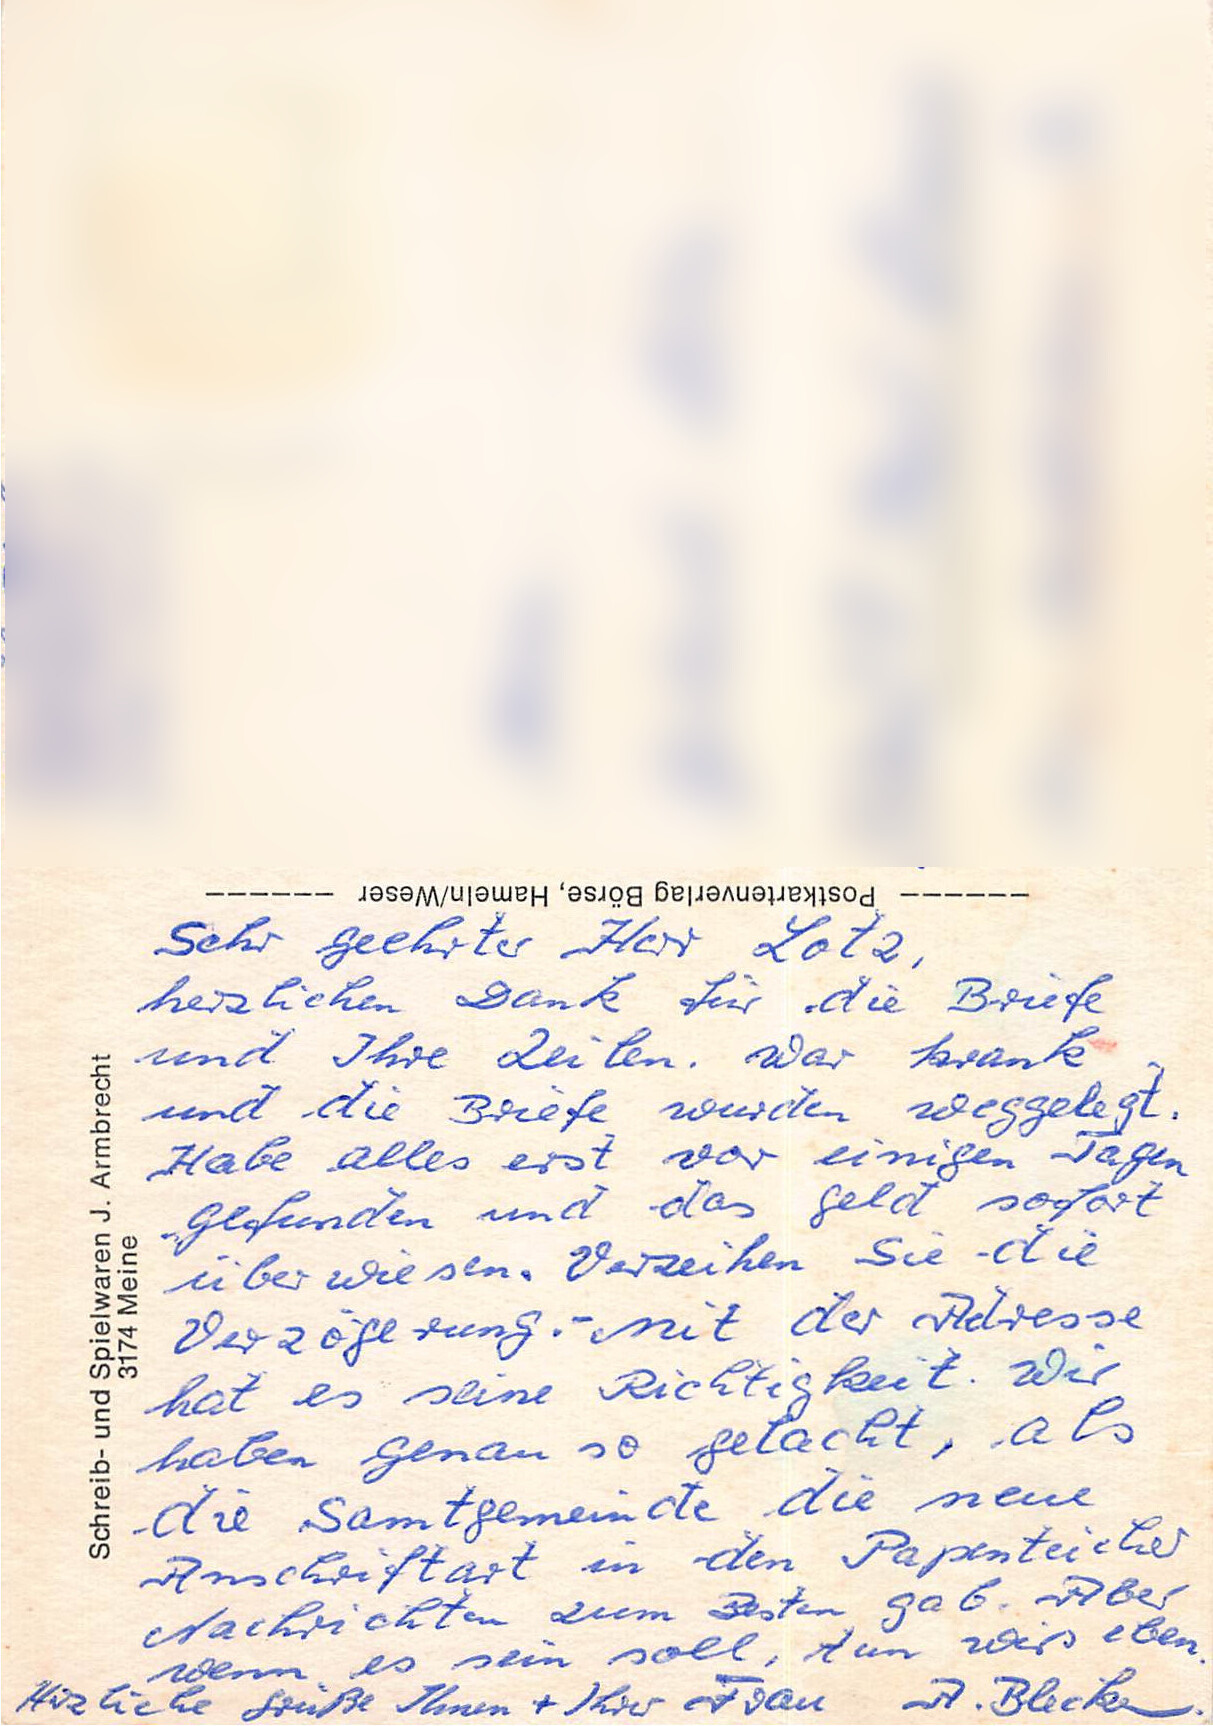 Postkartenverlag Börse, Hameln/Weser
Sehr geehrter Herr Lotz,
herzlichen Dank für die Briefe
und Ihre Zeilen. War krank
und die Briefe wurden weggelegt.
Habe alles erst vor einigen Tagen
gefunden und das Geld sofort
überwiesen. Verzeihen Sie die
Verzögerung. - Mit der Adresse
hat es seine Richtigkeit. Wir
haben genau so gelacht, als
die Samtgemeinde die neue
Anschriftart in den Papenteicher
Nachrichten zum Besten gab. Aber
wenn es sein soll, tun wirs eben.
Herzliche Grüße Ihnen + Ihrer Frau A. Blecke
Schreib- und Spielwaren J. Armbrecht
3174 Meine